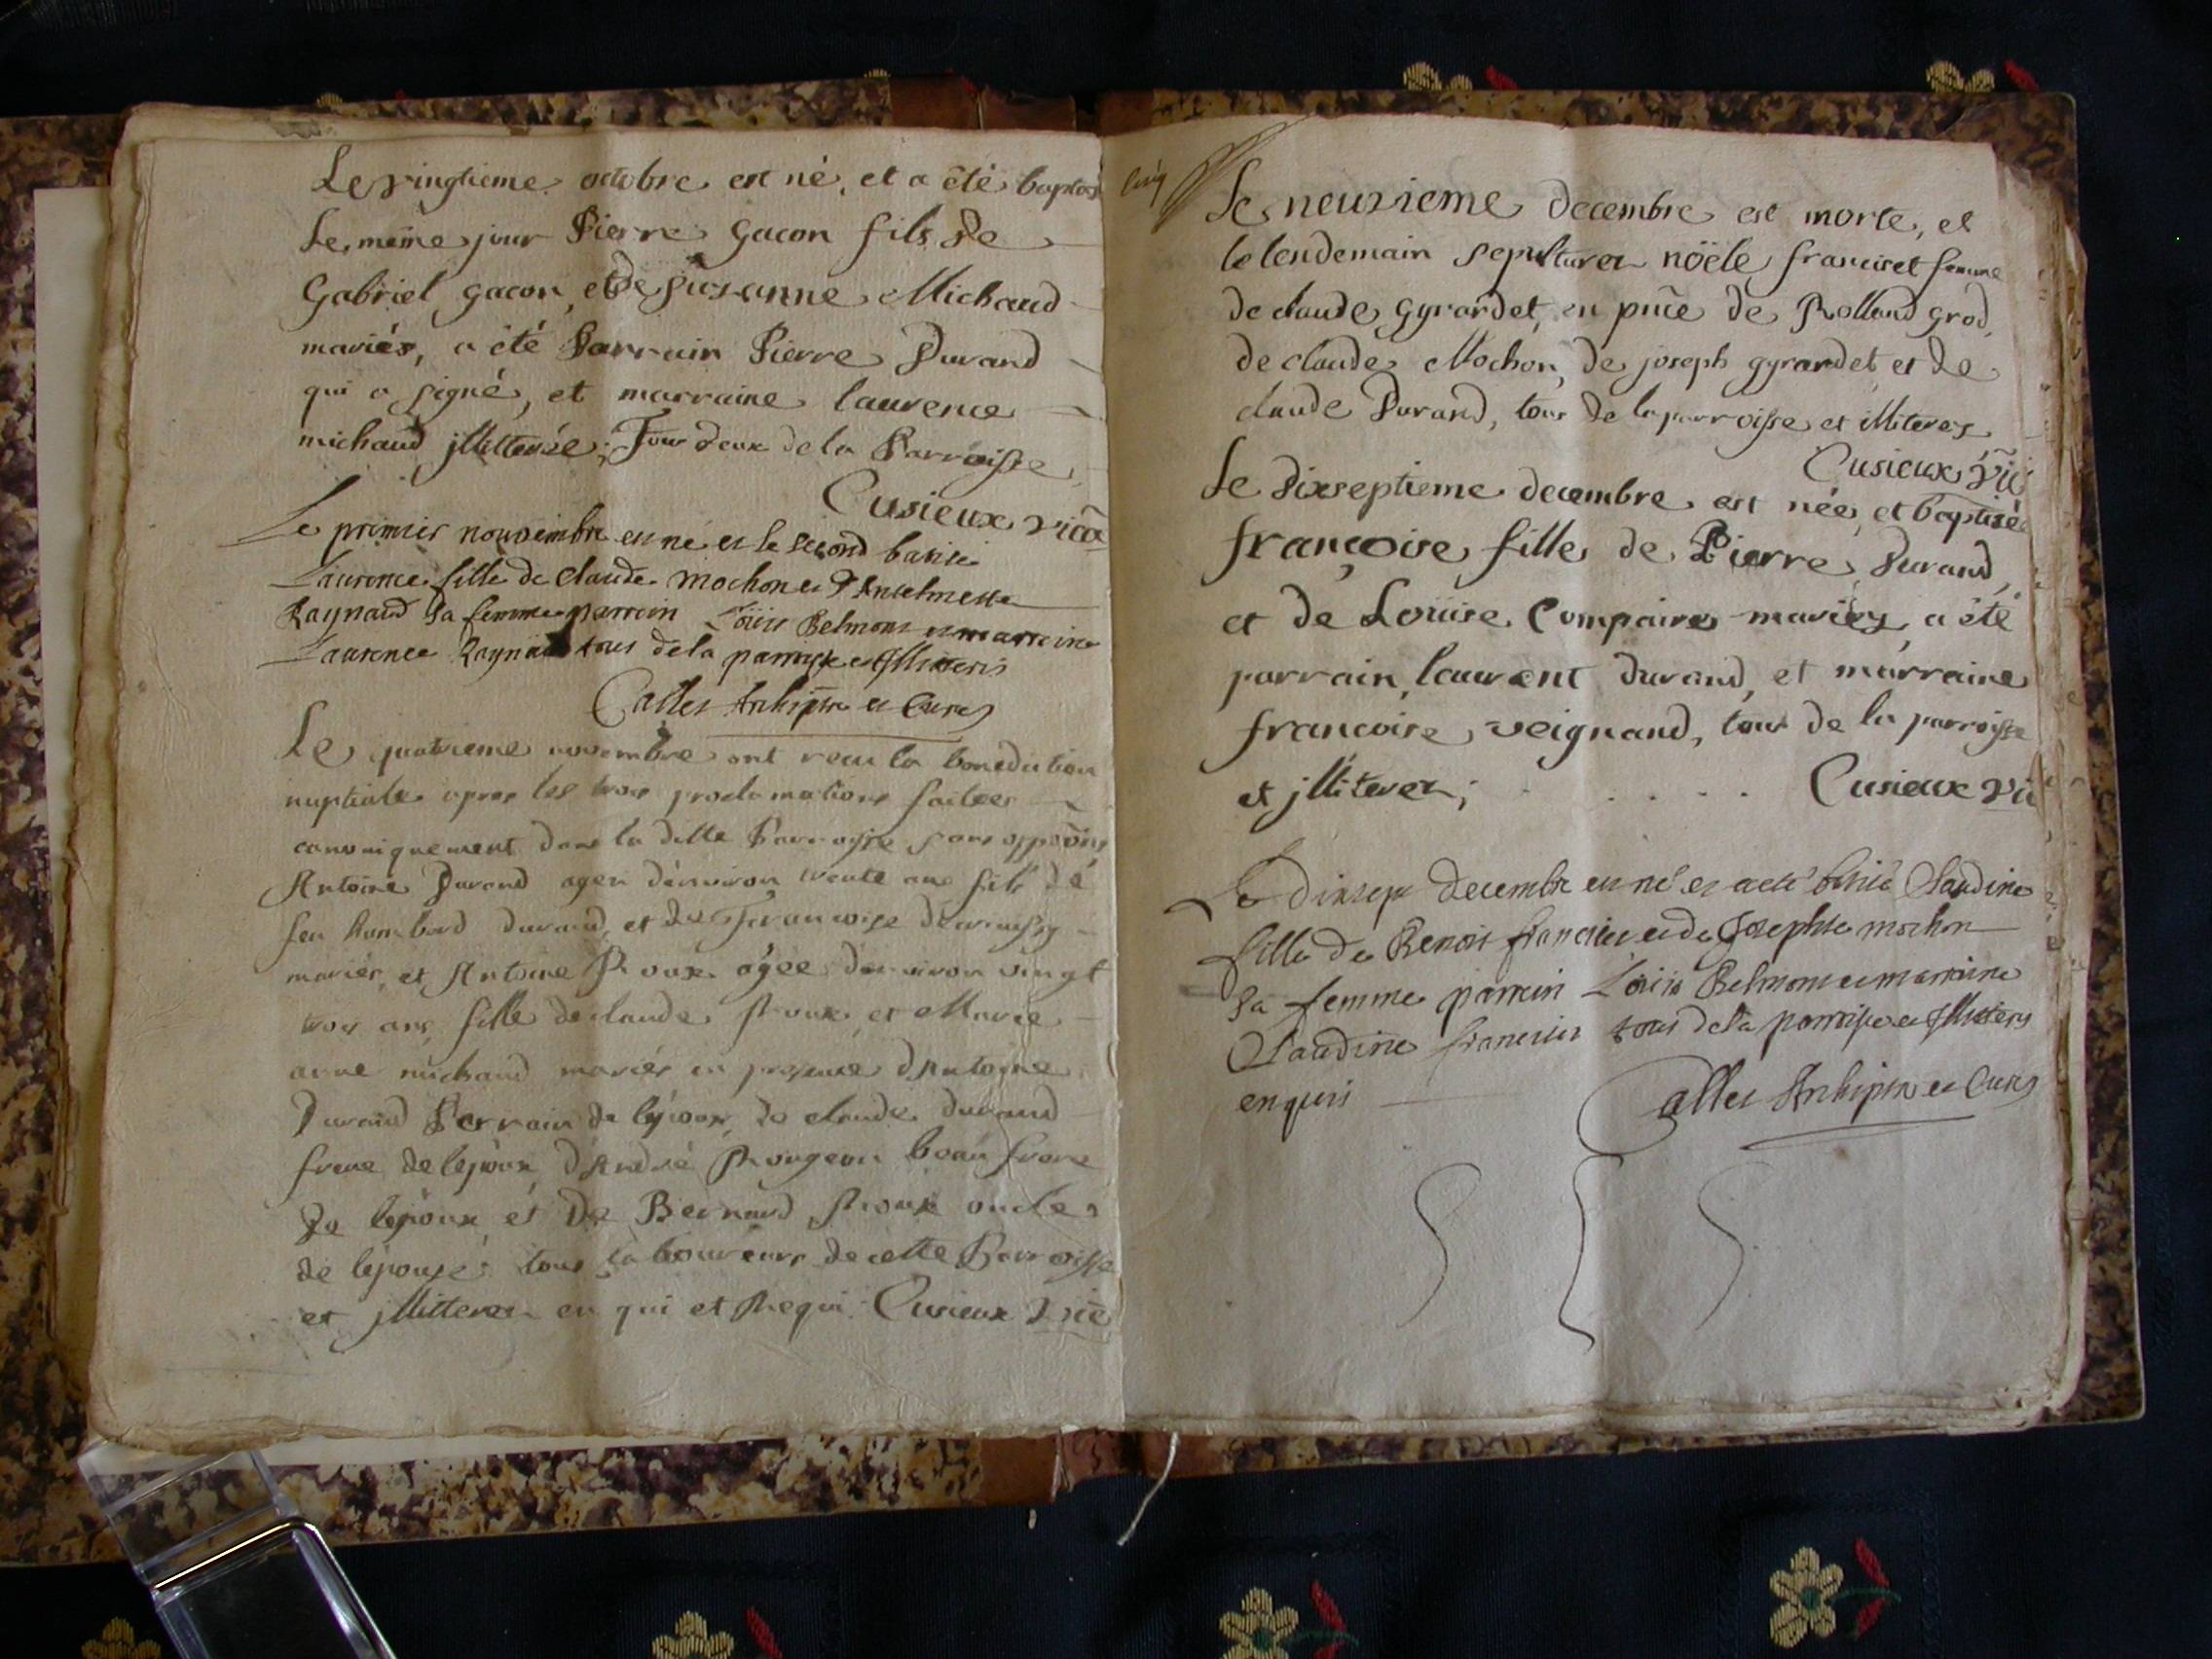 Le vingtieme octobre est né, et a été baptisé
le même jour Pierre Gacon fils de
Gabriel gacon, et de Susanne Michaud
mariés, a été Parrain Pierre Durand
qui a signé, et marraine laurence
michaud jllitterée; Tous deux de la Parroisse,
Cusieux vice
Le premier nouvembre est né et le second batisé
Laurence fille de Claude mochon et d'Anthelmette
Raynaud sa femme parrein Loüis Belmont et marreine
Laurence Raynaud tous dela parroisse et Illiteris
Calles Archiptre et Curé
Le quatrieme novembre ont recu la benediction
nuptiale apres les trois proclamations faittes
canoniquement dans la ditte Parroisse sans oppoõns
Antoine Durand agen d'environ trente ans fils de
feu humbard durand, et de Francoise
mariés, et Antoine Roux agée d'environ vingt
trois ans fille de claude Roux et Marie
anne michaud mariés en presence d'Antoine
Durand Parrain de lépoux, de claude durand
frere de lépoux, d'André Rougeon beau frere
de lépoux, et De Bernard Roux oncle
de lépouse: tous laboureurs de cette Parroisse
et jlliteres en qui et Requi. Cusieux vice
cinq
Le neuvieme decembre est morte, et
le lendemain sepulturer nöele franciset femme
de claude gyrardet, en pnce de Rolland grod,
de claude Mochon, de joseph gyrardet et de
claude Durand, tous de la parroisse et illiteres
Cusieux Vic
Le dixseptieme decembre est née, et baptisée
françoise fille de Pierre Durand,
et de Loüise Compaire mariés, a été
parrain, laurent durand, et marraine
francoise veignand, tous de la parroisse
et jlliteres; . . . . . Cusieux vic
Le dixsept decembre est né et a eté batisé Claudine
fille de Benoit franciset et de Josephte mochon
sa femme parrein Loüis Belmont et marreine
Claudine franciset tous dela parroisse et Illiteris
enquis Calles Archiptre et Curé